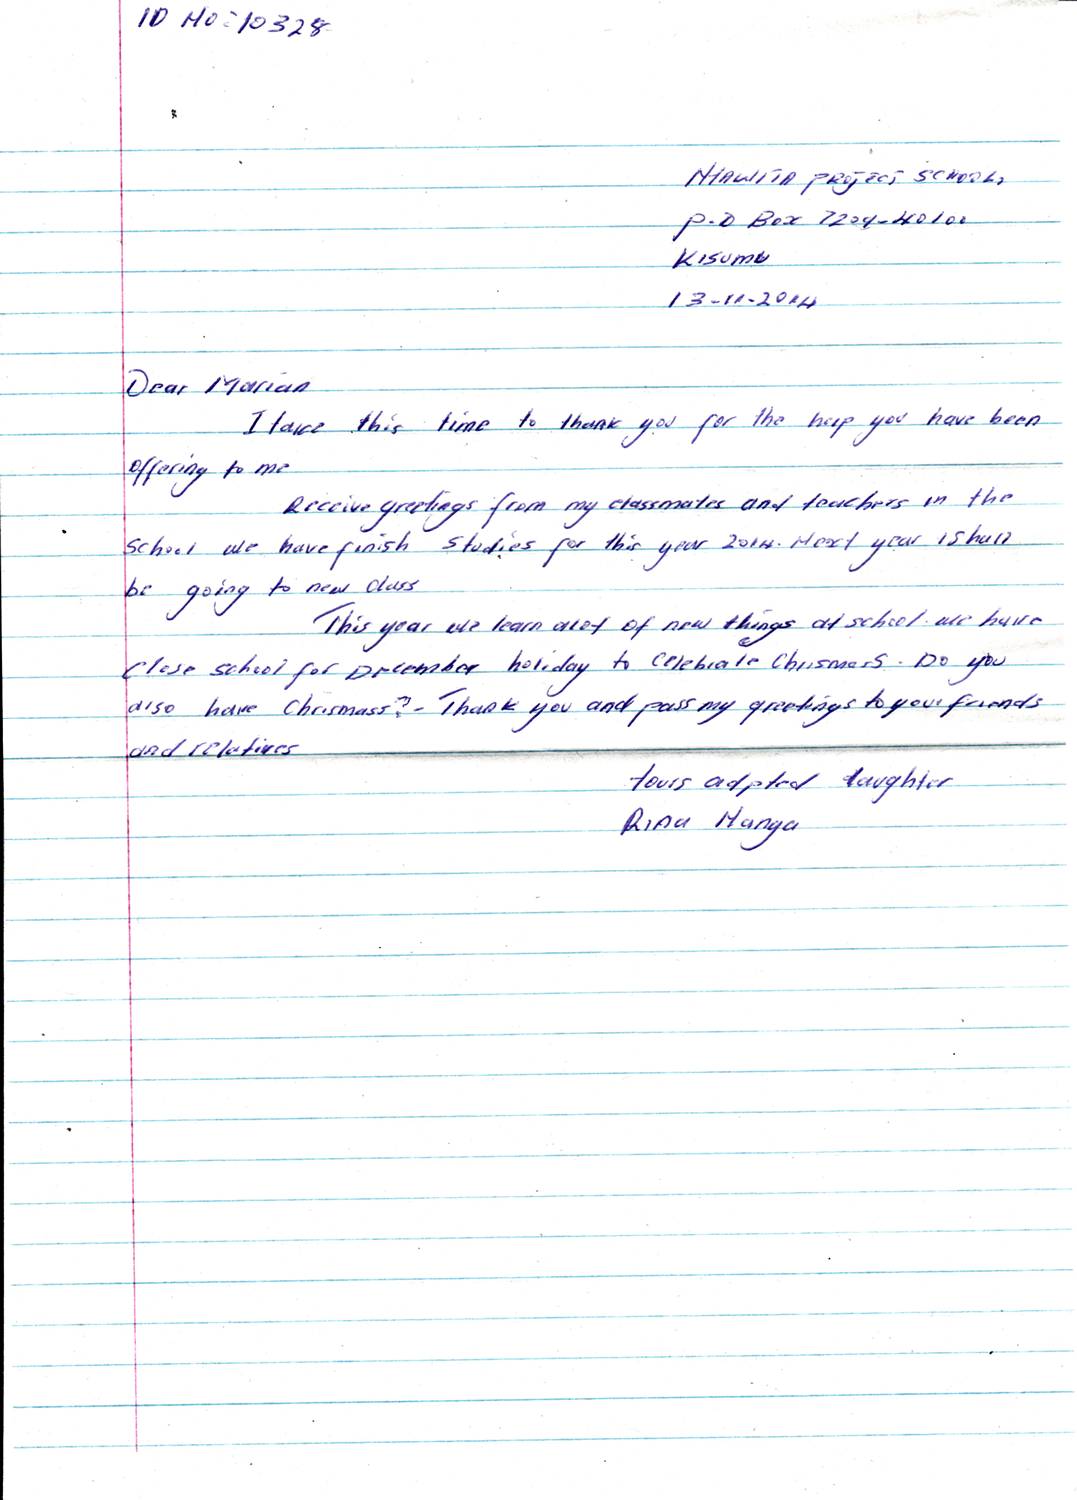 ID NO: 10328
NYAWITA PROJECT SCHOOL,
P.O Box 7204-40100
KISUMU
13-11-2014
Dear Marian
I take this time to thank you for the help you have been
offering to me
Receive greetings from my classmates and teachers in the
School we have finish studies for this year 2014. Next year I shall
be going to new class
This year we learn alot of new things at school. we have
Close school for December holiday to celebrate Chrismass. Do you
also have Chrismass? - Thank you and pass my greetings to your friends
and relatives
Yours adpted daughter